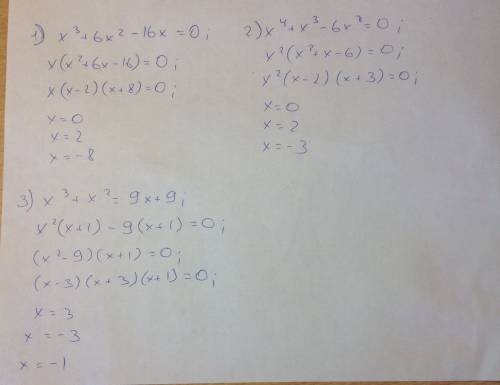 1) x³ + 6x² - 16x = 0;
x(x² + 6x - 16) = 0;
x(x - 2)(x + 8) = 0;
x = 0
x = 2
x = -8
2) x⁴ + x³ - 6x² = 0;
x²(x² + x - 6) = 0;
x²(x - 2)(x + 3) = 0;
x = 0
x = 2
x = -3
3) x³ + x² = 9x + 9;
x²(x + 1) - 9(x + 1) = 0;
(x² - 9)(x + 1) = 0;
(x - 3)(x + 3)(x + 1) = 0;
x = 3
x = -3
x = -1